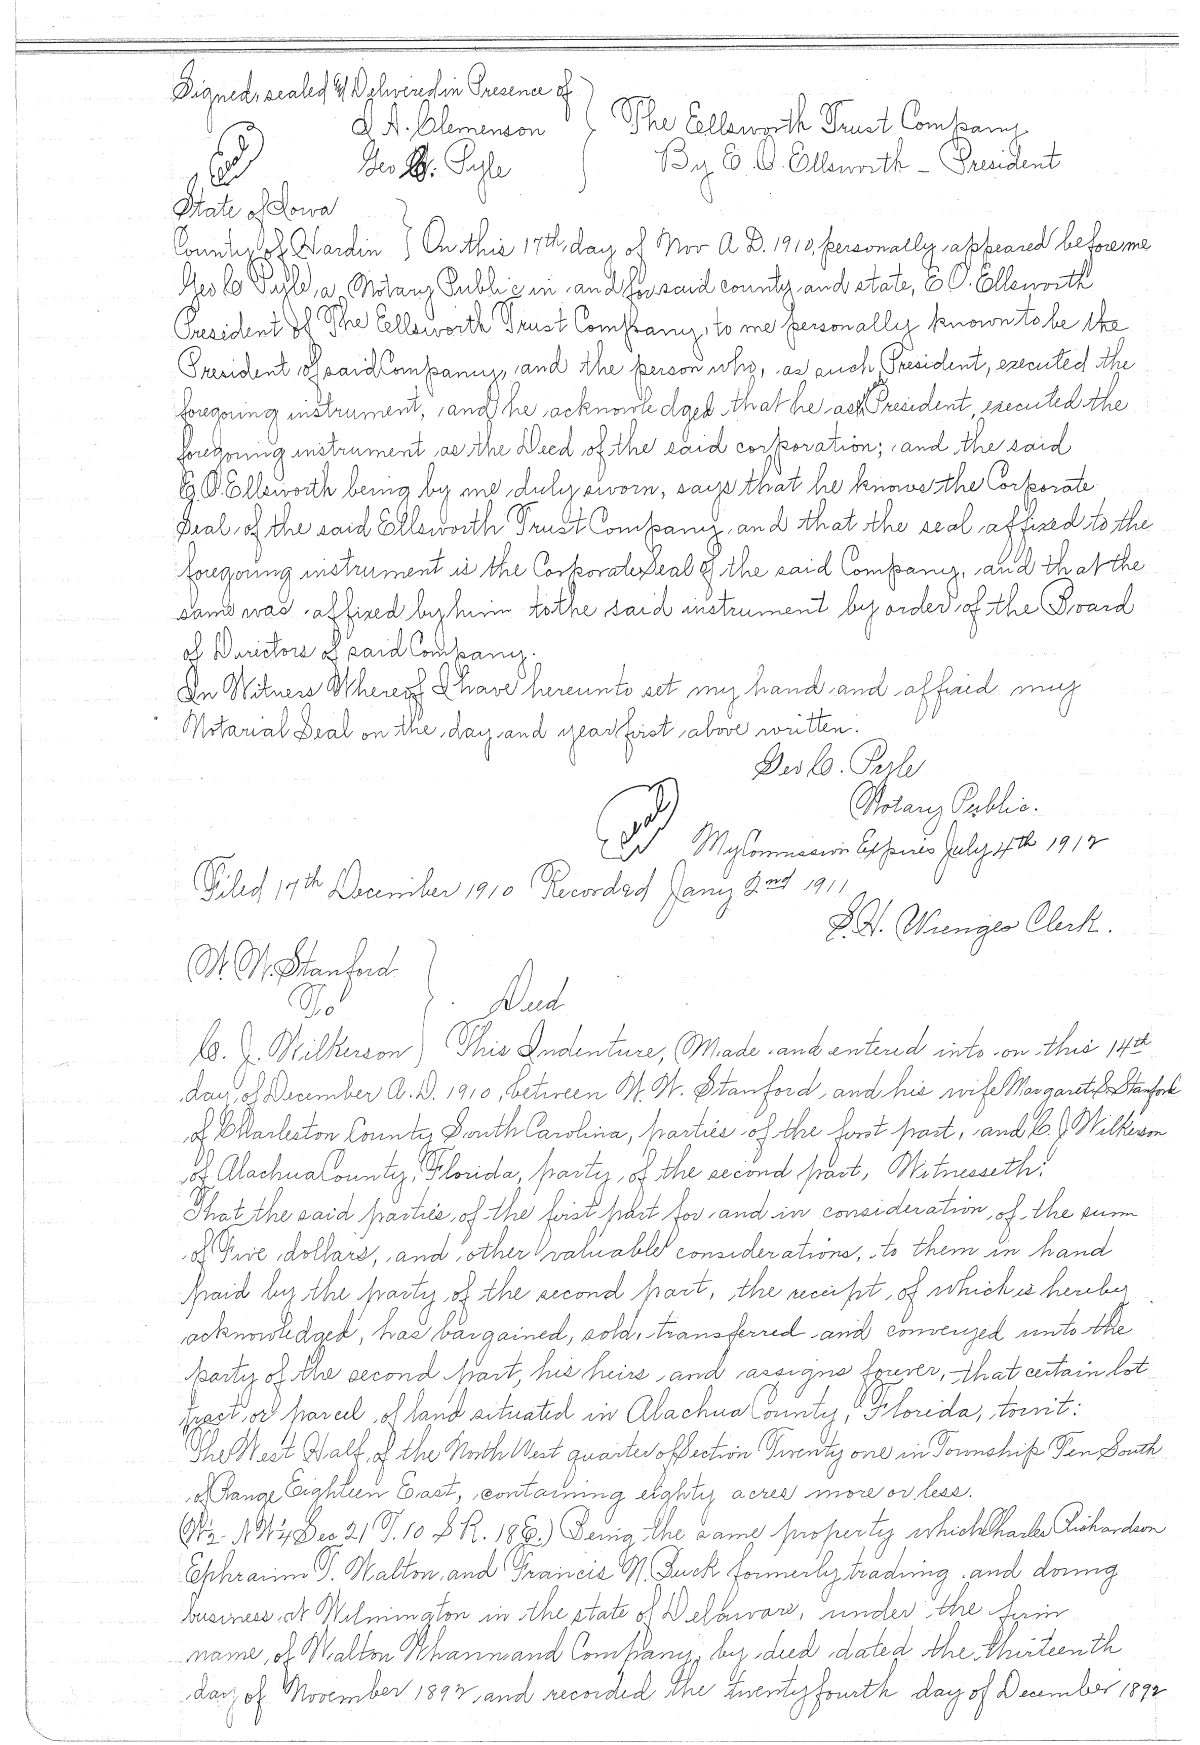 Signed, sealed & Delivered in Presence of
J A. Clemenson } The Ellsworth Trust Company
Seal Geo C. Pyle By E. O. Ellsworth - President
State of Iowa
County of Hardin } On this 17th day of Nov A.D. 1910, personally appeared before me
Geo C Pyle, a Notary Public in and for said county and state, E O. Ellsworth
President of The Ellsworth Trust Company, to me personally known to be the
President of said Company, and the person who, as such President, executed the
foregoing instrument, and he acknowledged that he as President, executed the
foregoing instrument as the Deed of the said corporation; and the said
E. O. Ellsworth being by me duly sworn, says that he knows the Corporate
Seal of the said Ellsworth Trust Company and that the seal affixed to the
foregoing instrument is the Corporate Seal of the said Company, and that the
same was affixed by him to the said instrument by order of the Board
of Directors of said Company.
In Witness Whereof I have hereunto set my hand and affixed my
Notarial Seal on the day and year first above written.
Geo C. Pyle
Notary Public.
Seal My Commission Expires July 4th 1912
Filed 17th December 1910 Recorded Jany 2nd 1911
S. H. Wienges Clerk.
W. W. Stanford
To } Deed
C. J. Wilkerson } This Indenture, Made and entered into on this 14th
day of December A.D. 1910, between W. W. Stanford and his wife Margaret S Stanford
of Charleston County South Carolina, parties of the first part, and C. J Wilkerson
of Alachua County, Florida, party of the second part, Witnesseth:
That the said parties of the first part for and in consideration of the sum
of Five dollars, and other valuable considerations, to them in hand
paid by the party of the second part, the receipt of which is hereby
acknowledged, has bargained, sold, transferred and conveyed unto the
party of the second part, his heirs and assigns forever, that certain lot
tract or parcel of land situated in Alachua County, Florida, towit:
The West Half of the North West quarter of Section Twenty one in Township Ten South
of Range Eighteen East, containing eighty acres more or less.
(W½ N W¼ Sec 21 T. 10 S R. 18 E.) Being the same property which Charles Richardson
Ephraim T. Walton and Francis N. Buck formerly trading and doing
business at Wilmington in the state of Delaware, under the firm
name of Walton Whann and Company, by deed dated the thirteenth
day of November 1892 and recorded the twenty fourth day of December 1892